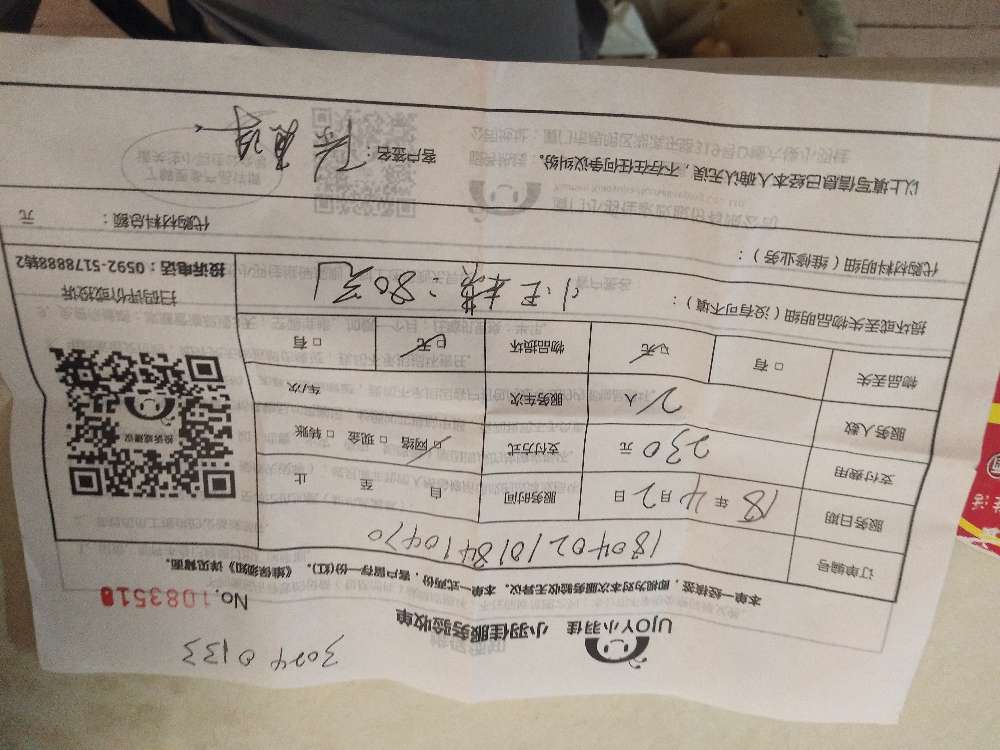 3024 0133
UJOY小羽佳 小羽佳服务验收单
No.1083518
本单一经核签，即视为对本次服务验收无异议。本单一式两份，客户留存一份(红)。《维保须知》详见背面。
订单编号 1804021018410470
服务日期 18年4月2日 服务时间 自 至 止
支付费用 230元 支付方式 □网络 □现金 □转账
服务人数 2人 服务车次 车/次
物品丢失 □有 □无 物品损坏 □无 □有
损坏或丢失物品明细（没有可不填）：
80元
代购材料明细（维修业务）：
代购材料总额： 元
以上填写信息已经本人确认无误，不存在任何争议纠纷。 客户签名：
投诉或建议
扫码评价或投诉
投诉电话：0592-5178888转2